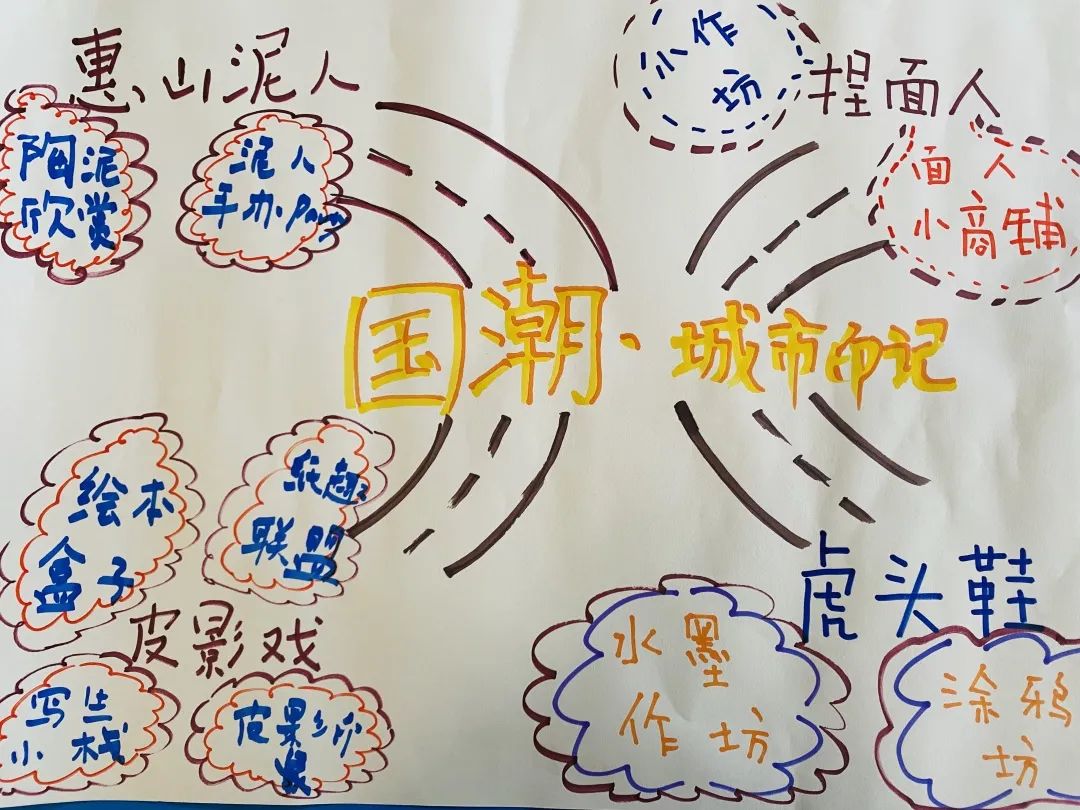 惠山泥人
小作
坊
捏面人
陶泥
欣赏
泥人
手办·Party
面人
小商铺
国潮·城市印记
绘本
盒子
纸趣
联盟
皮影戏
虎头鞋
写生
小栈
水墨
作坊
涂鸦
坊